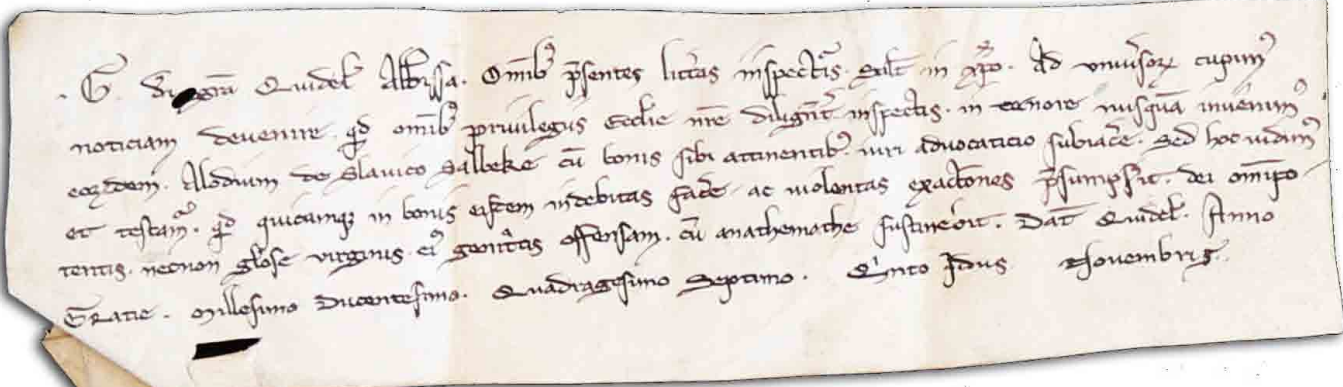 . G. di gr̄a Quidel̄ Abb̄issa. Om̄ib₉ p̄sentes litt̄as inspectur̄. Salt̄ in xp̄o. Ad vniũsoꝝ cupim₉
noticiam devenire. qd̄ om̄ib₉ priuilegiis Eccl̄ie nr̄e diligent̄ inspectis. in tenore nusquā invenim₉
eoꝝdem. Alodium de Slauico Salbeke cū bonis sibi attinentib₉. iuri aduocaticio subiac̄e. Sed hoc uidam₉
et testam₉. qd̄ quicumq; in bonis eisdem indebitas fac̄e ac uiolentas exact̄ones p̄sumpsit. dei om̄ipo-
tentis. necnon gl̄ose virginis. ei₉ genit̄cis offensam. cū anathemathe sustinebit. Dat̄ Quidel̄. Anno
Gratie. Millesimo Ducentesimo. Quadragesimo Septimo. Q͛nto Idus Novembris.